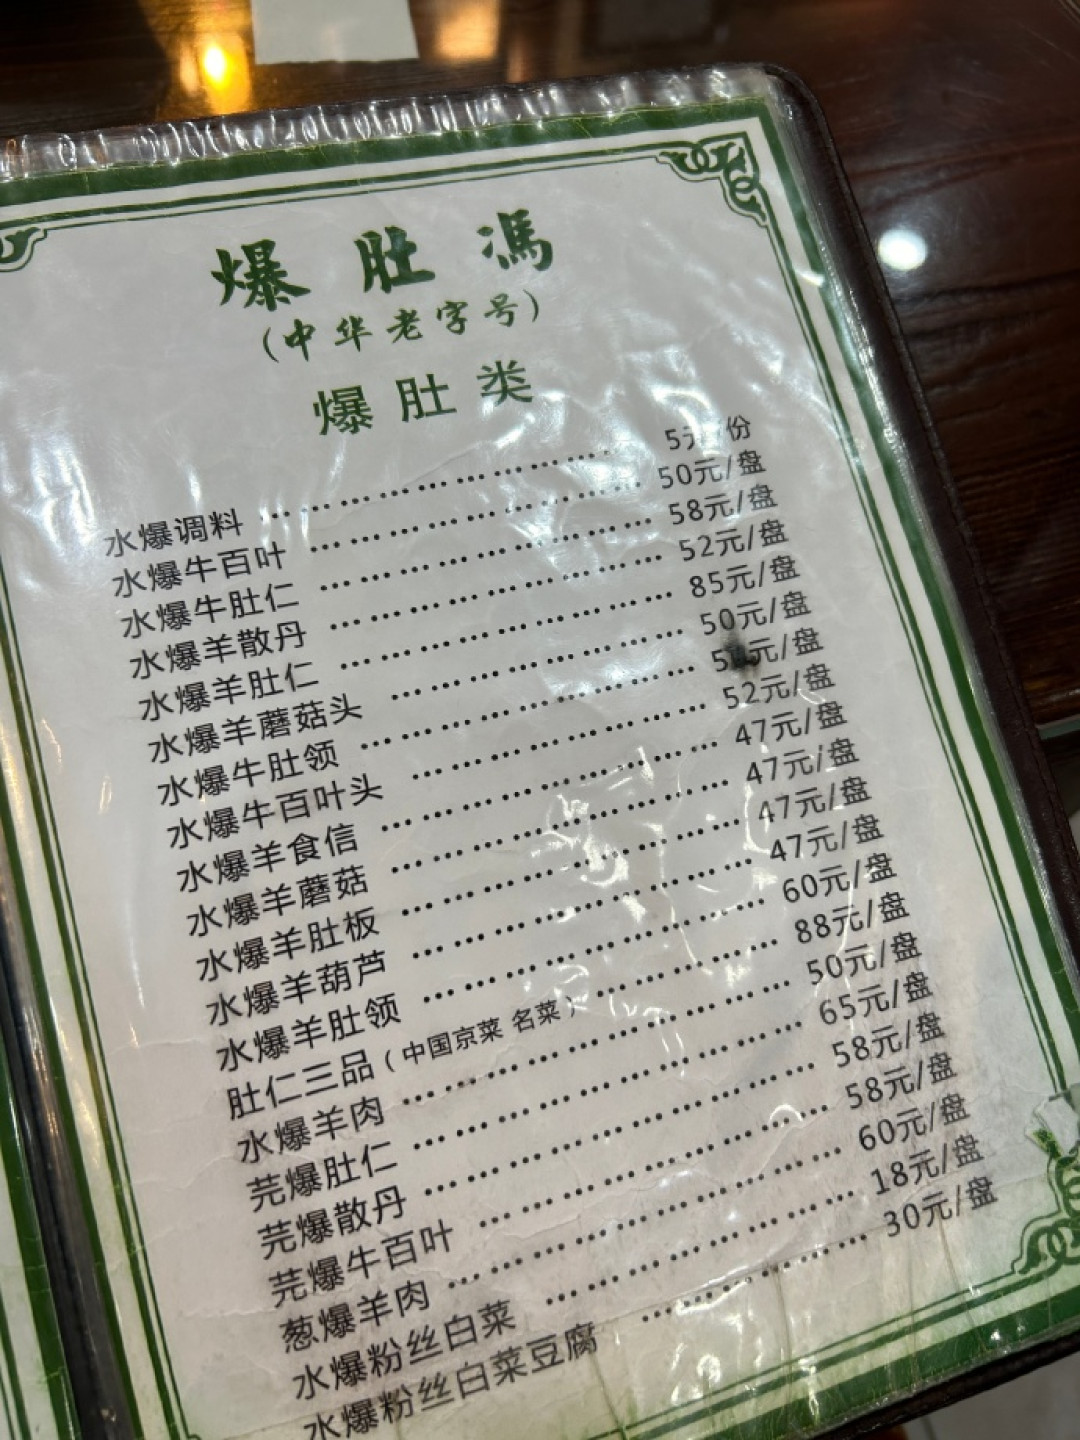 爆肚馮
(中华老字号)
爆肚类
水爆调料 …………………… 5元/份
水爆牛百叶 …………………… 50元/盘
水爆牛肚仁 …………………… 58元/盘
水爆羊散丹 …………………… 52元/盘
水爆羊肚仁 …………………… 85元/盘
水爆羊蘑菇头 …………………… 50元/盘
水爆牛肚领 …………………… 元/盘
水爆牛百叶头 …………………… 52元/盘
水爆羊食信 …………………… 47元/盘
水爆羊蘑菇 …………………… 47元/盘
水爆羊肚板 …………………… 47元/盘
水爆羊葫芦 …………………… 47元/盘
水爆羊肚领 …………………… 60元/盘
肚仁三品(中国京菜 名菜) ………… 88元/盘
水爆羊肉 …………………… 50元/盘
芫爆肚仁 …………………… 65元/盘
芫爆散丹 …………………… 58元/盘
芫爆牛百叶 …………………… 58元/盘
葱爆羊肉 …………………… 60元/盘
水爆粉丝白菜 …………………… 18元/盘
水爆粉丝白菜豆腐 …………………… 30元/盘